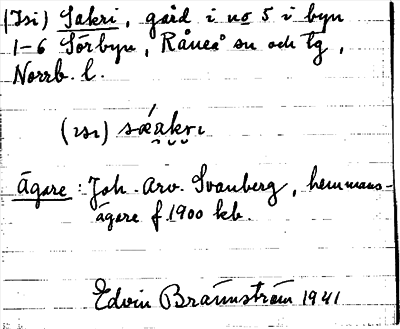 (Isi) Sakri, gård i no 5 i byn
1-6 Sörbyn, Råneå sn och tg,
Norrb. l.
(ısı) sæakrı
Ägare: Joh. Arv. Svanberg, hemmans-
ägare f 1900 kb.
Edvin Brännström 1941